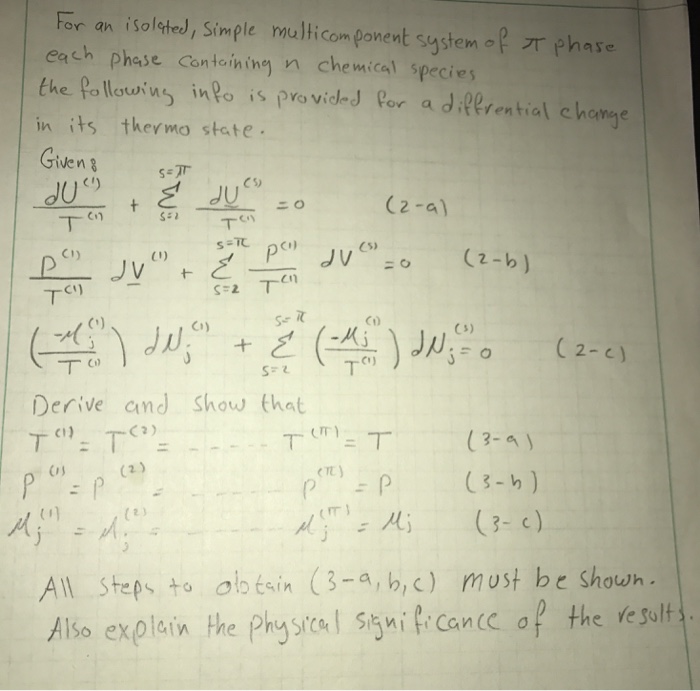 For an isolated, simple multicomponent system of π phase
each phase containing n chemical species
the following info is provided for a diffrential change
in its thermo state.
Given:
dU⁽¹⁾/T⁽¹⁾ + Σ_{s=2}^{s=π} dU⁽ˢ⁾/T⁽¹⁾ = 0 (2-a)
P⁽¹⁾/T⁽¹⁾ dV⁽¹⁾ + Σ_{s=2}^{s=π} P⁽¹⁾/T⁽¹⁾ dV⁽ˢ⁾ = 0 (2-b)
(-μⱼ⁽¹⁾/T⁽¹⁾) dNⱼ⁽¹⁾ + Σ_{s=2}^{s=π} (-μⱼ⁽¹⁾/T⁽¹⁾) dNⱼ⁽ˢ⁾ = 0 (2-c)
Derive and show that
T⁽¹⁾ = T⁽²⁾ = ------ T^(π) = T (3-a)
P⁽¹⁾ = P⁽²⁾ = ------ P^(π) = P (3-b)
μⱼ⁽¹⁾ = μⱼ⁽²⁾ = ------ μⱼ^(π) = μⱼ (3-c)
All steps to obtain (3-a,b,c) must be shown.
Also explain the physical significance of the results.